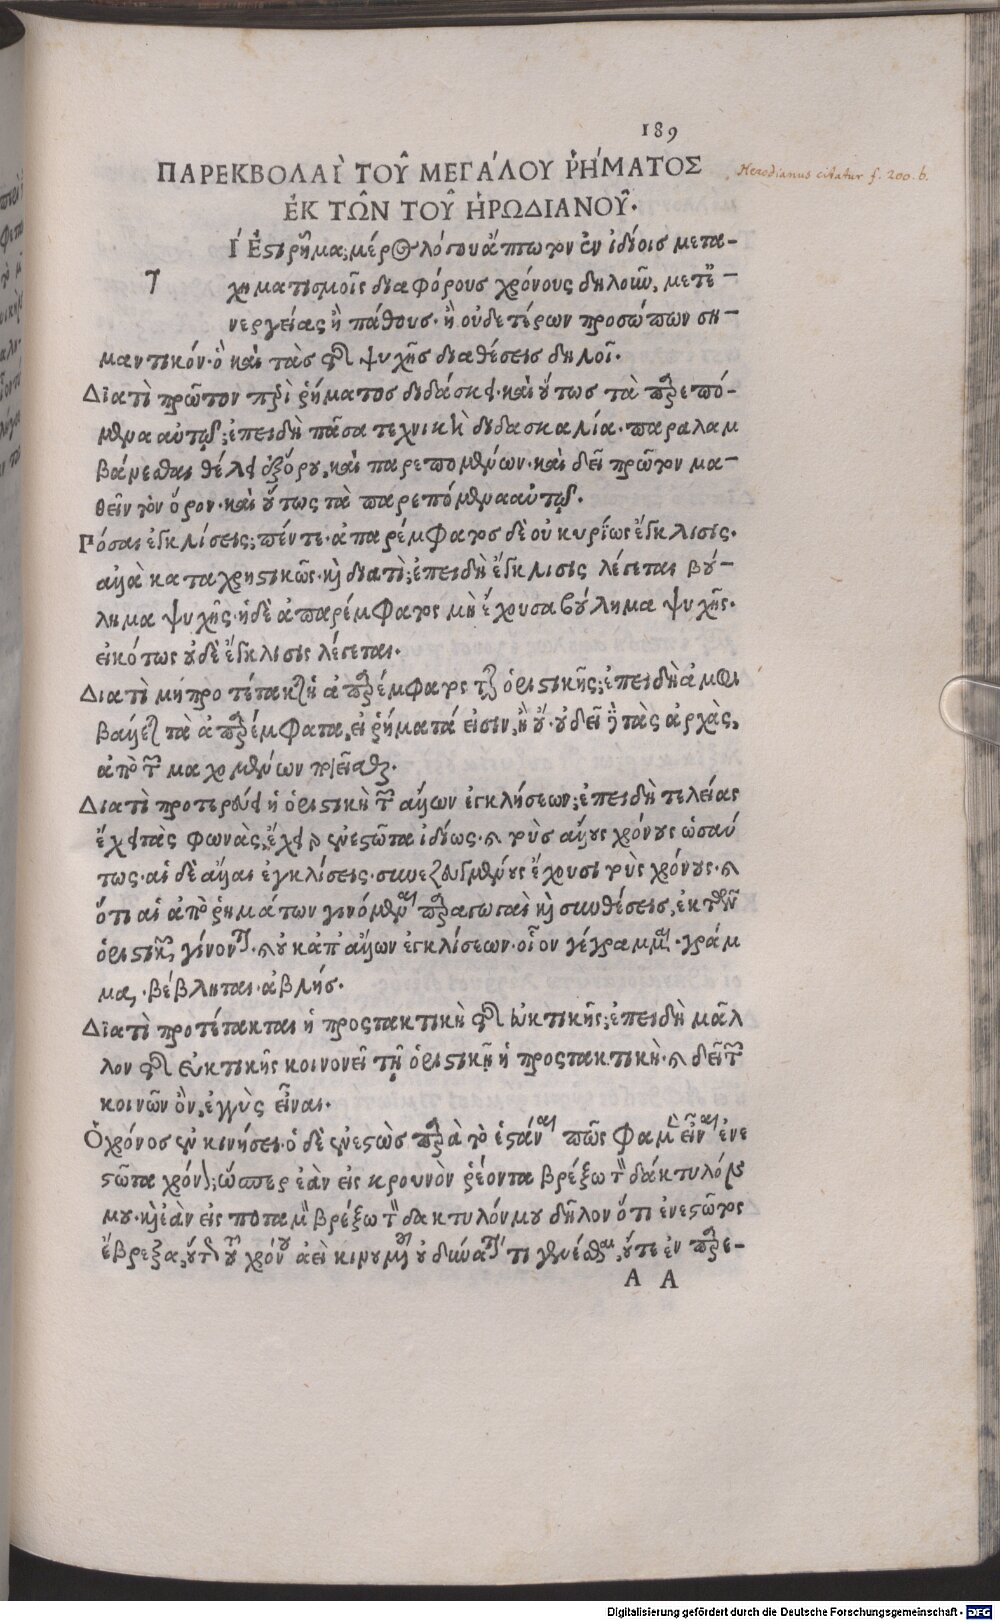 189
ΠΑΡΕΚΒΟΛΑῚ ΤΟΥ͂ ΜΕΓΆΛΟΥ ῬΉΜΑΤΟΣ
ἘΚ ΤΩ͂Ν ΤΟΥ͂ ἩΡΩΔΙΑΝΟΥ͂.
Herodianus citatur f. 200. b.
τ
Ί Ἐστι ῥῆμα; μέρος λόγου ἄπτωτον ἐν ἰδίοις μετα-
χηματισμοῖς διαφόρους χρόνους δηλοῦν, μετ' ἐ-
νεργείας ἢ πάθους. ἢ οὐδετέρων προσώπων ση-
μαντικόν. ὃ καὶ τὰς τῆς ψυχῆς διαθέσεις δηλοῖ.
Διατὶ πρῶτον περὶ ῥήματος διδάσκει. καὶ οὕτως τὰ παρεπό-
μενα αὐτῷ; ἐπειδὴ πᾶσα τεχνικὴ διδασκαλία. παραλαμ
βάνεσθαι θέλει ἐξ ὅρου, καὶ παρεπομένων. καὶ δεῖ πρῶτον μα-
θεῖν τὸν ὅρον. καὶ οὕτως τὰ παρεπόμενα αὐτῷ.
Πόσαι ἐγκλίσεις; πέντε. ἀπαρέμφατος δὲ οὐ κυρίως ἔγκλισις.
ἀλλὰ καταχρηστικῶς. καὶ διατὶ; ἐπειδὴ ἔγκλισις λέγεται βού-
λημα ψυχῆς. ἡ δὲ ἀπαρέμφατος μὴ ἔχουσα βούλημα ψυχῆς.
εἰκότως οὐδὲ ἔγκλισις λέγεται.
Διατὶ μὴ προτέτακται ἡ ἀπαρέμφατος τῆς ὁριστικῆς; ἐπειδὴ ἀμφι
βάλλεται τὰ ἀπαρέμφατα, εἰ ῥήματά εἰσιν, ἢ οὔ. οὐ δεῖ τὰς ἀρχὰς,
ἀπὸ τῶν μαχομένων ποιεῖσθαι.
Διατὶ προτερεύει ἡ ὁριστικὴ τῶν ἄλλων ἐγκλήσεων; ἐπειδὴ τελείας
ἔχει τὰς φωνὰς, ἔχει τὸν ἐνεστῶτα ἰδίως. καὶ τοὺς ἄλλους χρόνους ὡσαύ
τως. αἱ δὲ ἄλλαι ἐγκλίσεις. συνεζευγμένους ἔχουσι τοὺς χρόνους. καὶ
ὅτι αἱ ἀπὸ ῥημάτων γινόμεναι παραγωγαὶ καὶ συνθέσεις, ἐκ τῶν
ὁριστικῶν γίνονται. οὐκ ἀπ' ἄλλων ἐγκλίσεων. οἷον γέγραμμαι. γράμ
μα, βέβληται. ἀβλής.
Διατὶ προτέτακται ἡ προστακτικὴ τῆς εὐκτικῆς; ἐπειδὴ μᾶλ
λον τῆς εὐκτικῆς κοινονεῖ τῇ ὁριστικῇ ἡ προστακτικὴ. καὶ δεῖ τῶν
κοινῶν ὂν, ἐγγὺς εἶναι.
Ὁ χρόνος ἐν κινήσει. ὁ δὲ ἐνεστὼς παρὰ τὸ ἑστάναι πῶς φαμὲν εἶναι ἐνε
στῶτα χρόνον; ὥσπερ ἐὰν εἰς κρουνὸν ῥέοντα βρέξω τὸν δάκτυλόν
μου. καὶ ἐὰν εἰς ποταμὸν βρέξω τὸν δακτυλόν μου δῆλον ὅτι ἐνεστῶτος
ἔβρεξα, οὕτω τοῦ χρόνου ἀεὶ κινουμένου οὐ δύναταί τι γενέσθαι, οὔτε ἐν παρε-
Α Α
Digitalisierung gefördert durch die Deutsche Forschungsgemeinschaft - DFG